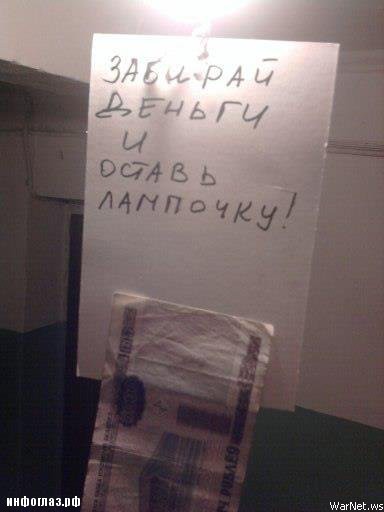 ЗАБИРАЙ
ДЕНЬГИ
И
ОСТАВЬ
ЛАМПОЧКУ!
РУБЛЕЙ
инфоглаз.рф
WarNet.ws